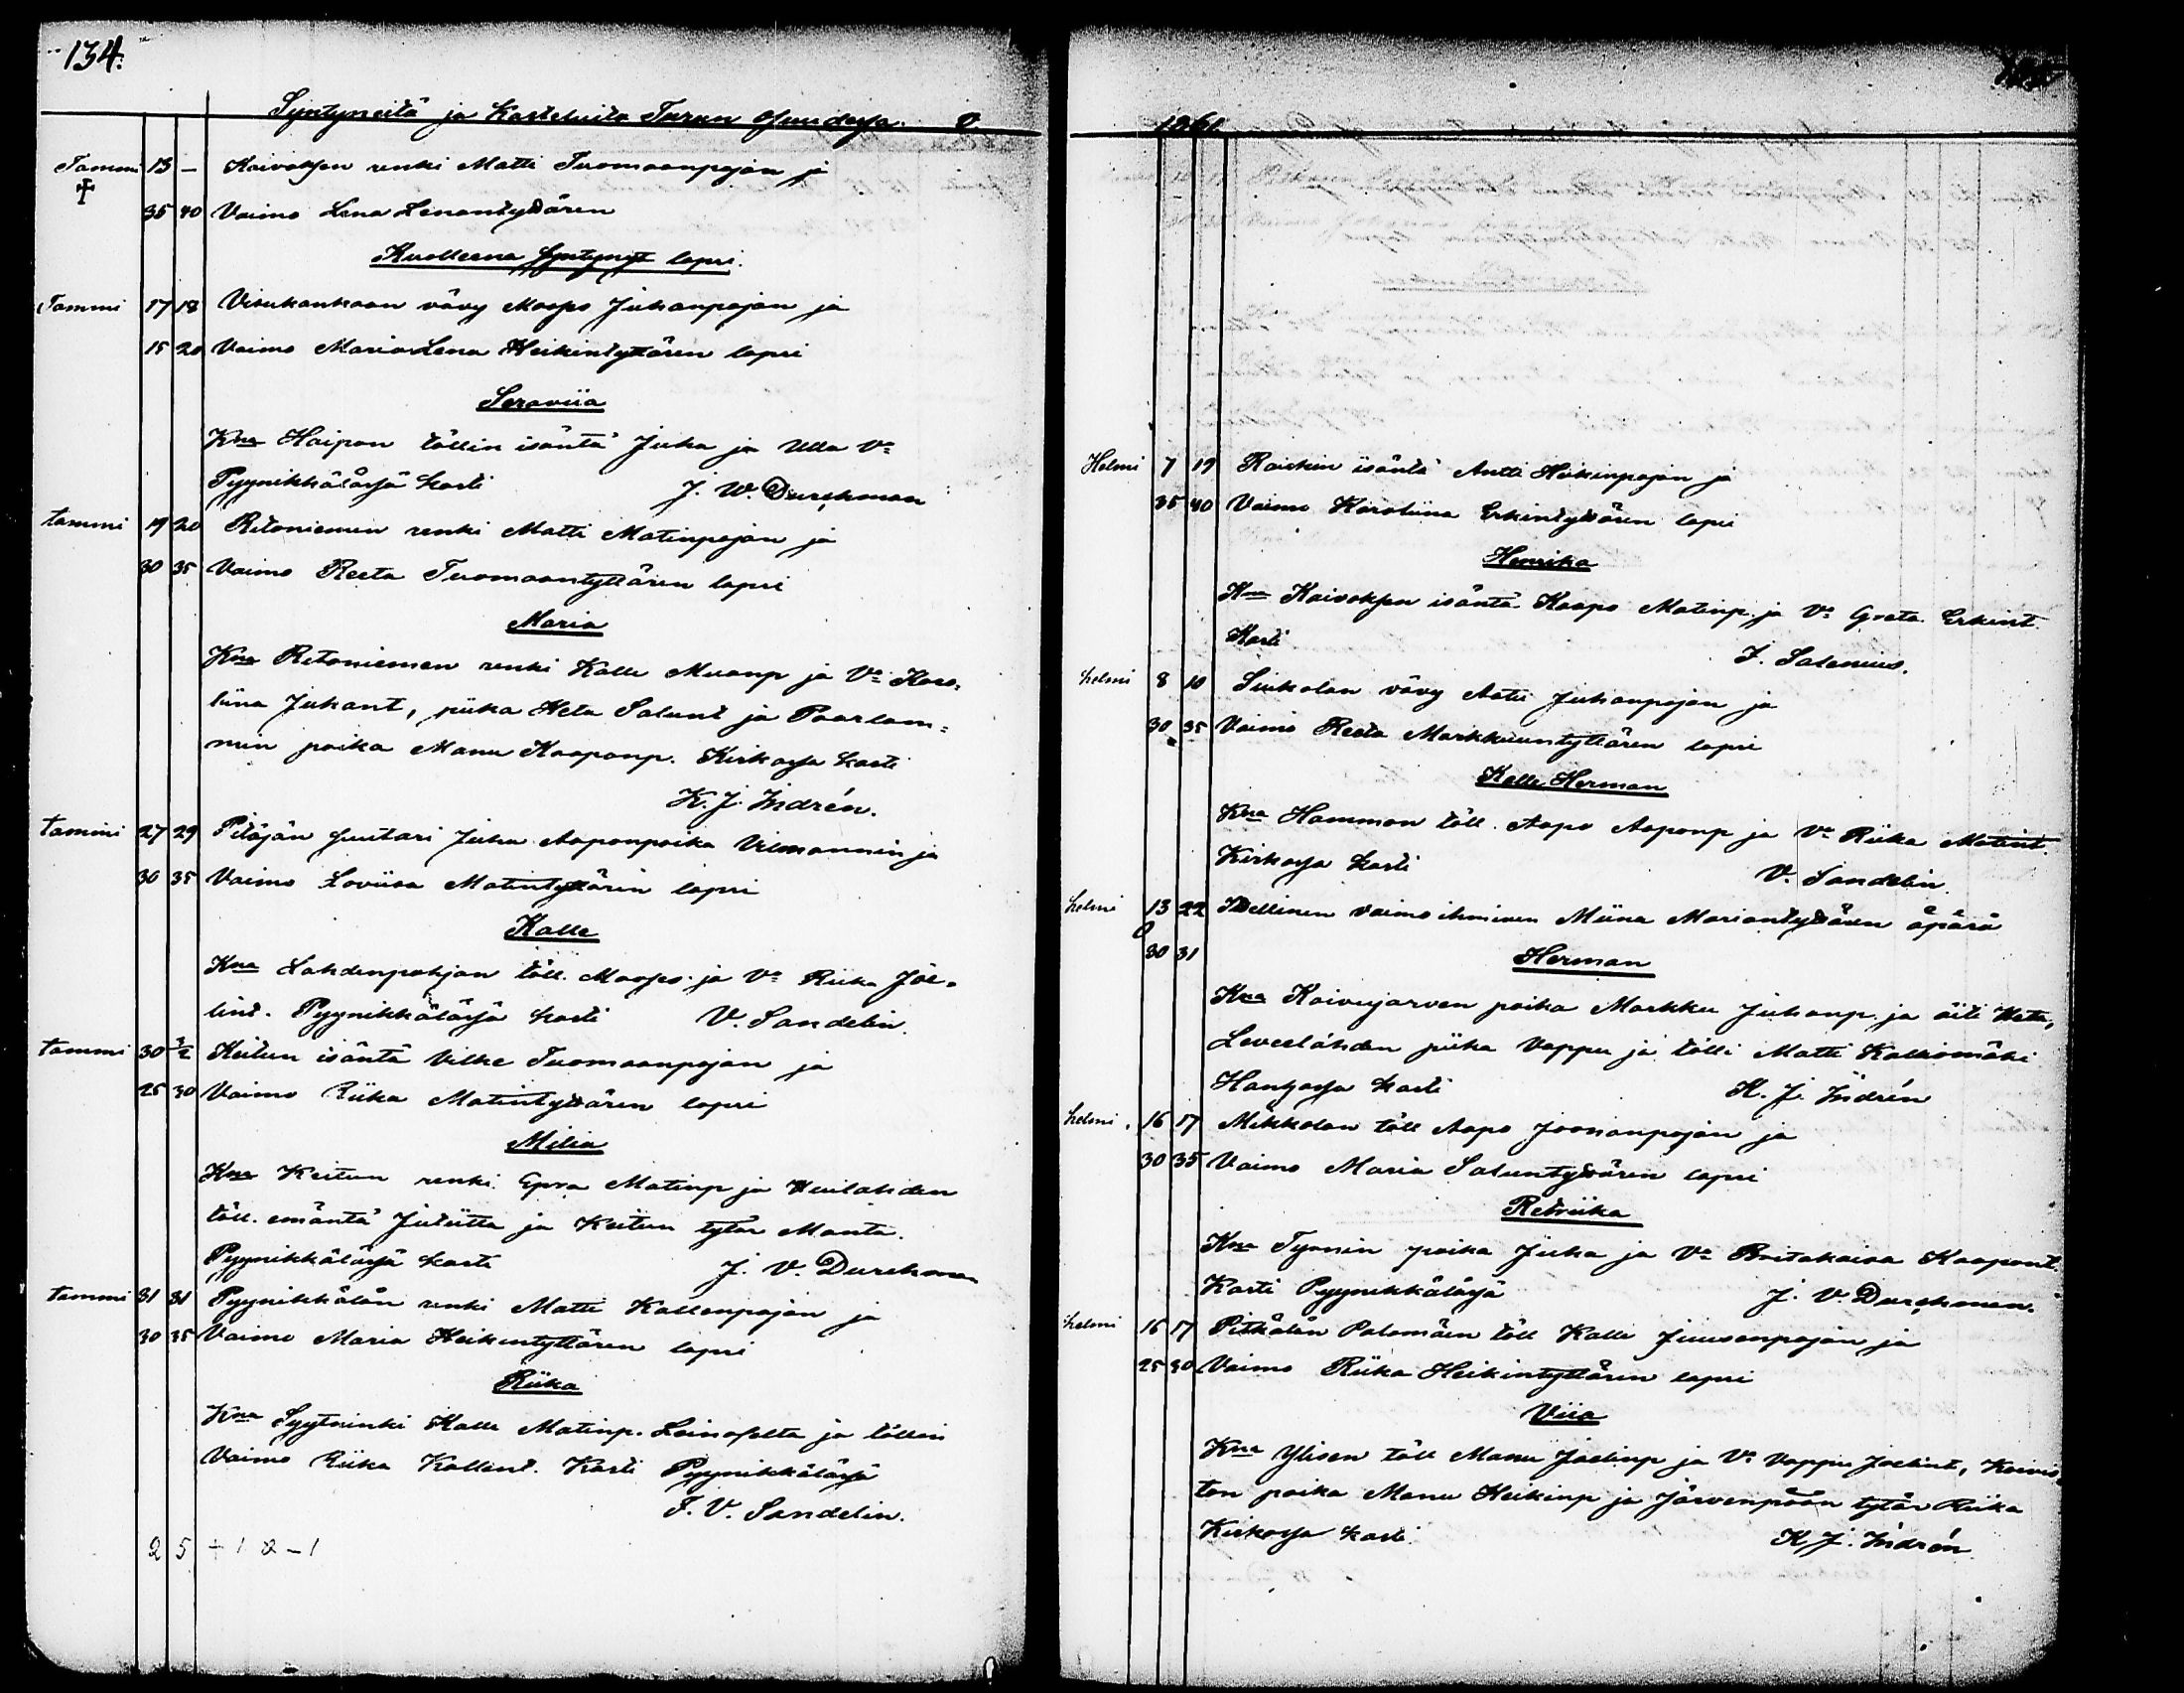 134.
Syntyneitä ja Kastetuita Turun Osuudessa. V.
Tammi 13 – Kaivoksen renki Matti Tuomaanpojan ja
35 40 Vaimo Lena Lenantyttären
Kuolleena Syntynyt lapsi.
Tammi 17 18 Visukankaan vävy Maapo Juhanpojan ja
15 20 Vaimo Maria Lena Heikintyttären lapsi
Seraviia
Kna Haipan töllin isäntä Juha ja Ulla Vo
Pyynikkälässä kasti J. W. Durchman
tammi 19 20 Ritoniemen renki Matti Matinpojan ja
30 35 Vaimo Reeta Tuomaantyttären lapsi
Maria
Kna Ritoniemen renki Kalle Manup ja Vo Karo=
liina Juhant, piika Heta Salunt ja Paarlam=
min poika Manu Kaaponp. Kirkossa kasti
K. J. Indrén.
tammi 27 29 Pitäjän suutari Juha Aaponpoika Vilmannin ja
30 35 Vaimo Loviisa Matintyttären lapsi
Kalle
Kna Lahdenpohjan töll. Maapo ja Vo Riika Joe=
lint. Pyynikkälässä kasti V. Sandelin.
tammi 30 3/2 Keitun isäntä Vilke Tuomaanpojan ja
25 30 Vaimo Riika Matintyttären lapsi
Milia
Kna Keitun renki Epra Matinp ja Heilahden
töll. emäntä Juliitta ja Keitun tytär Manta.
Pyynikkälässä kasti J. V. Durchman
tammi 31 31 Pyynikkälän renki Matti Kallenpojan ja
30 35 Vaimo Maria Heikintyttären lapsi
Riika
Kna Syytninki Kalle Matinp. Leinoselta ja töllin
Vaimo Riika Kallent. Kasti Pyynikkälässä
F. V. Sandelin.
2 5 + 1 2 – 1
1861
Helmi 7 19 Raiskin isäntä Antti Heikinpojan ja
35 40 Vaimo Karoliina Erkintyttären lapsi
Henrika
Kna Kaivoksen isäntä Kaapo Matinp. ja Vo Greta Erkint.
Kasti J. Salenius.
helmi 8 10 Siukolan vävy Antti Juhanpojan ja
30 35 Vaimo Reeta Markkuuntyttären lapsi
Kalle Herman
Kna Hamman töll. Aapo Aaponp ja Vo Riika Matint.
Kirkossa kasti V. Sandelin.
helmi 13 22 Itellinen vaimo ihminen Miina Mariantyttären äpärä
30 31 Herman
Kna Koivujarven poika Markku Juhanp. ja äiti Heta,
Leveelahden piika Vappu ja tölli Matti Kalliomäki
Hanhossa kasti K. J. Indrén
helmi 16 17 Mikkolan töll Aapo Joonanpojan ja
30 35 Vaimo Maria Saluntyttären lapsi
Retriika
Kna Tyynin poika Juha ja Vo Britakaisa Kaapont.
Kasti Pyynikkälässä J. V. Durchman.
helmi 16 17 Pitkälän Palomäen töll Kalle Juusenpojan ja
25 30 Vaimo Riika Heikintyttären lapsi
Viia
Kna Ylisen töll Manu Joelinp ja Vo Vappu Joelint, Koivis=
ton poika Manu Heikinp ja Järvenpään tytär Riika
Kirkossa kasti. K. J. Indrén